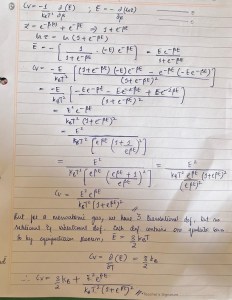 Cv = -1/k_BT² ∂(E)/∂β ; E = -∂(ln z)/∂β
z = e^-β(0) + e^-βE ⇒ 1+e^-βE
ln z = ln (1+e^-βE)
E = -[1/(1+e^-βE) · (-E) e^-βE] = E e^-βE/(1+e^-βE)
Cv = -E/k_BT² [(1+e^-βE)(-E) e^-βE - e^-βE(-E e^-βE)/(1+e^-βE)²]
= -E/k_BT² [-E e^-βE - E e^-2βE + E e^-2βE/(1+e^-βE)²]
= E² e^-βE/k_BT² (1+e^-βE)²
= E²/k_BT² [e^βE (1+1/e^βE)²]
= E²/k_BT² [e^βE (e^βE+1)²/(e^βE)²] = E²/k_BT² (1+e^βE)²
Cv = E² e^βE/k_BT² (1+e^βE)²
But for a monoatomic gas, we have 3 translational dof, but no
rotational & vibrational dof. Each dof contributes one
to by equipartition theorem, E = 3/2 k_BT
Cv = ∂(E)/∂T = 3/2 k_B
∴ Cv = 3/2 k_B + E² e^βE/k_BT² (1+e^βE)²